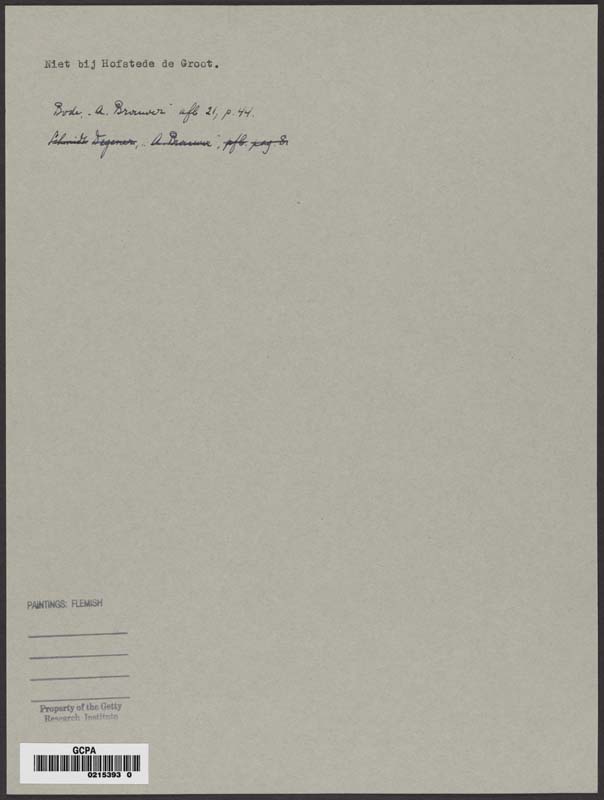 Niet bij Hofstede de Groot.
Bode, "A. Brouwer" afb 21, p. 44.
Schmidt Degener, "A. Brouwer", afb. pag 8.
PAINTINGS: FLEMISH
Property of the Getty
Research Institute
GCPA
0215393 0